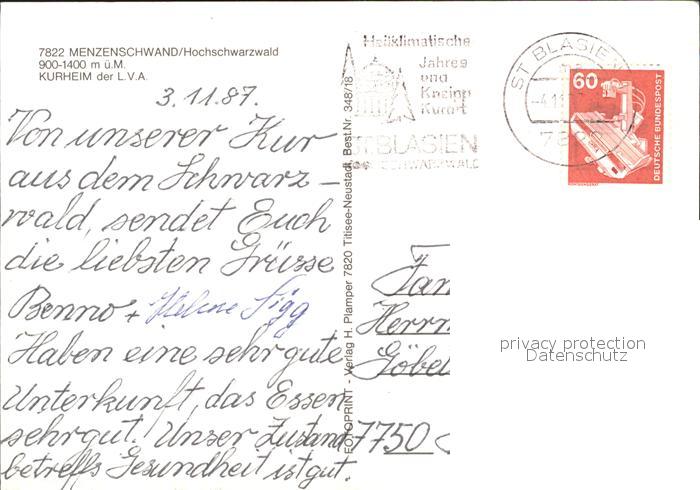 7822 MENZENSCHWAND/Hochschwarzwald
900-1400 m ü.M.
KURHEIM der L.V.A.
3.11.87.
Von unserer Kur
aus dem Schwarz-
wald, sendet Euch
die liebsten Grüsse
Benno + Helene Sigg
Haben eine sehr gute
Unterkunft, das Essen
sehr gut. Unser Zustand
betreffs Gesundheit ist gut.
FOTOPRINT - Verlag H. Plamper 7820 Titisee-Neustadt, Best.Nr. 348/18
Heilklimatische
Jahres
und
Kneipp
Kurort
ST. BLASIEN
SCHWARZWALD
ST BLASIEN
-4.11.
60
DEUTSCHE BUNDESPOST
RÖNTGENGERÄT
Fam
Herrn
Göbel
7750
privacy protection
Datenschutz